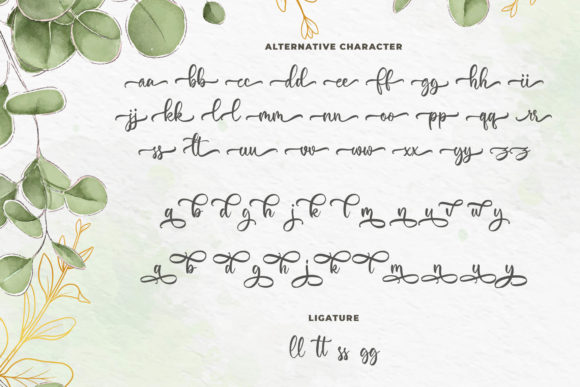 ALTERNATIVE CHARACTER
aa bb cc dd ee ff gg hh ii
jj kk ll mm nn oo pp qq rr
ss tt uu vv ww xx yy zz
a b d g h j k t m n u v w y
a b d g h j k t m n u y
LIGATURE
ll tt ss gg